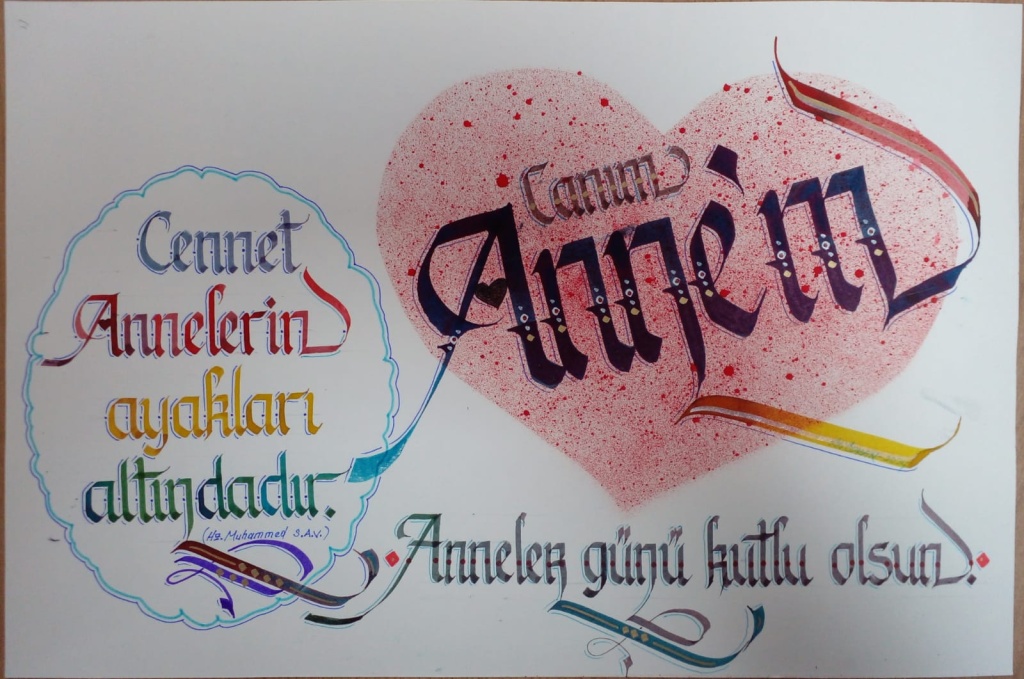 Cennet
Annelerin
ayakları
altındadır.
(Hz. Muhammed S.A.V.)
Canım
Annem
Anneler günü kutlu olsun.